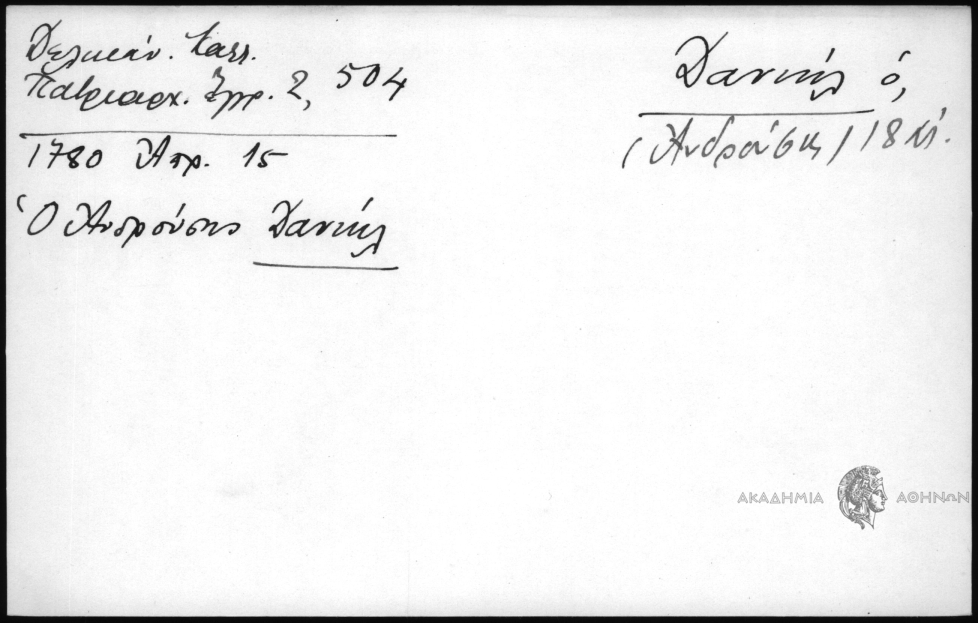 Δελικάν. Καλλ.
Πατριαρχ. Ἔγγρ. 2, 504
1780 Ἀπρ. 15
Ὁ Ἀνδρούσης Δανιήλ
Δανιήλ ὁ,
(Ἀνδρούσης) 18 αἰ.
ΑΚΑΔΗΜΙΑ ΑΘΗΝΩΝ